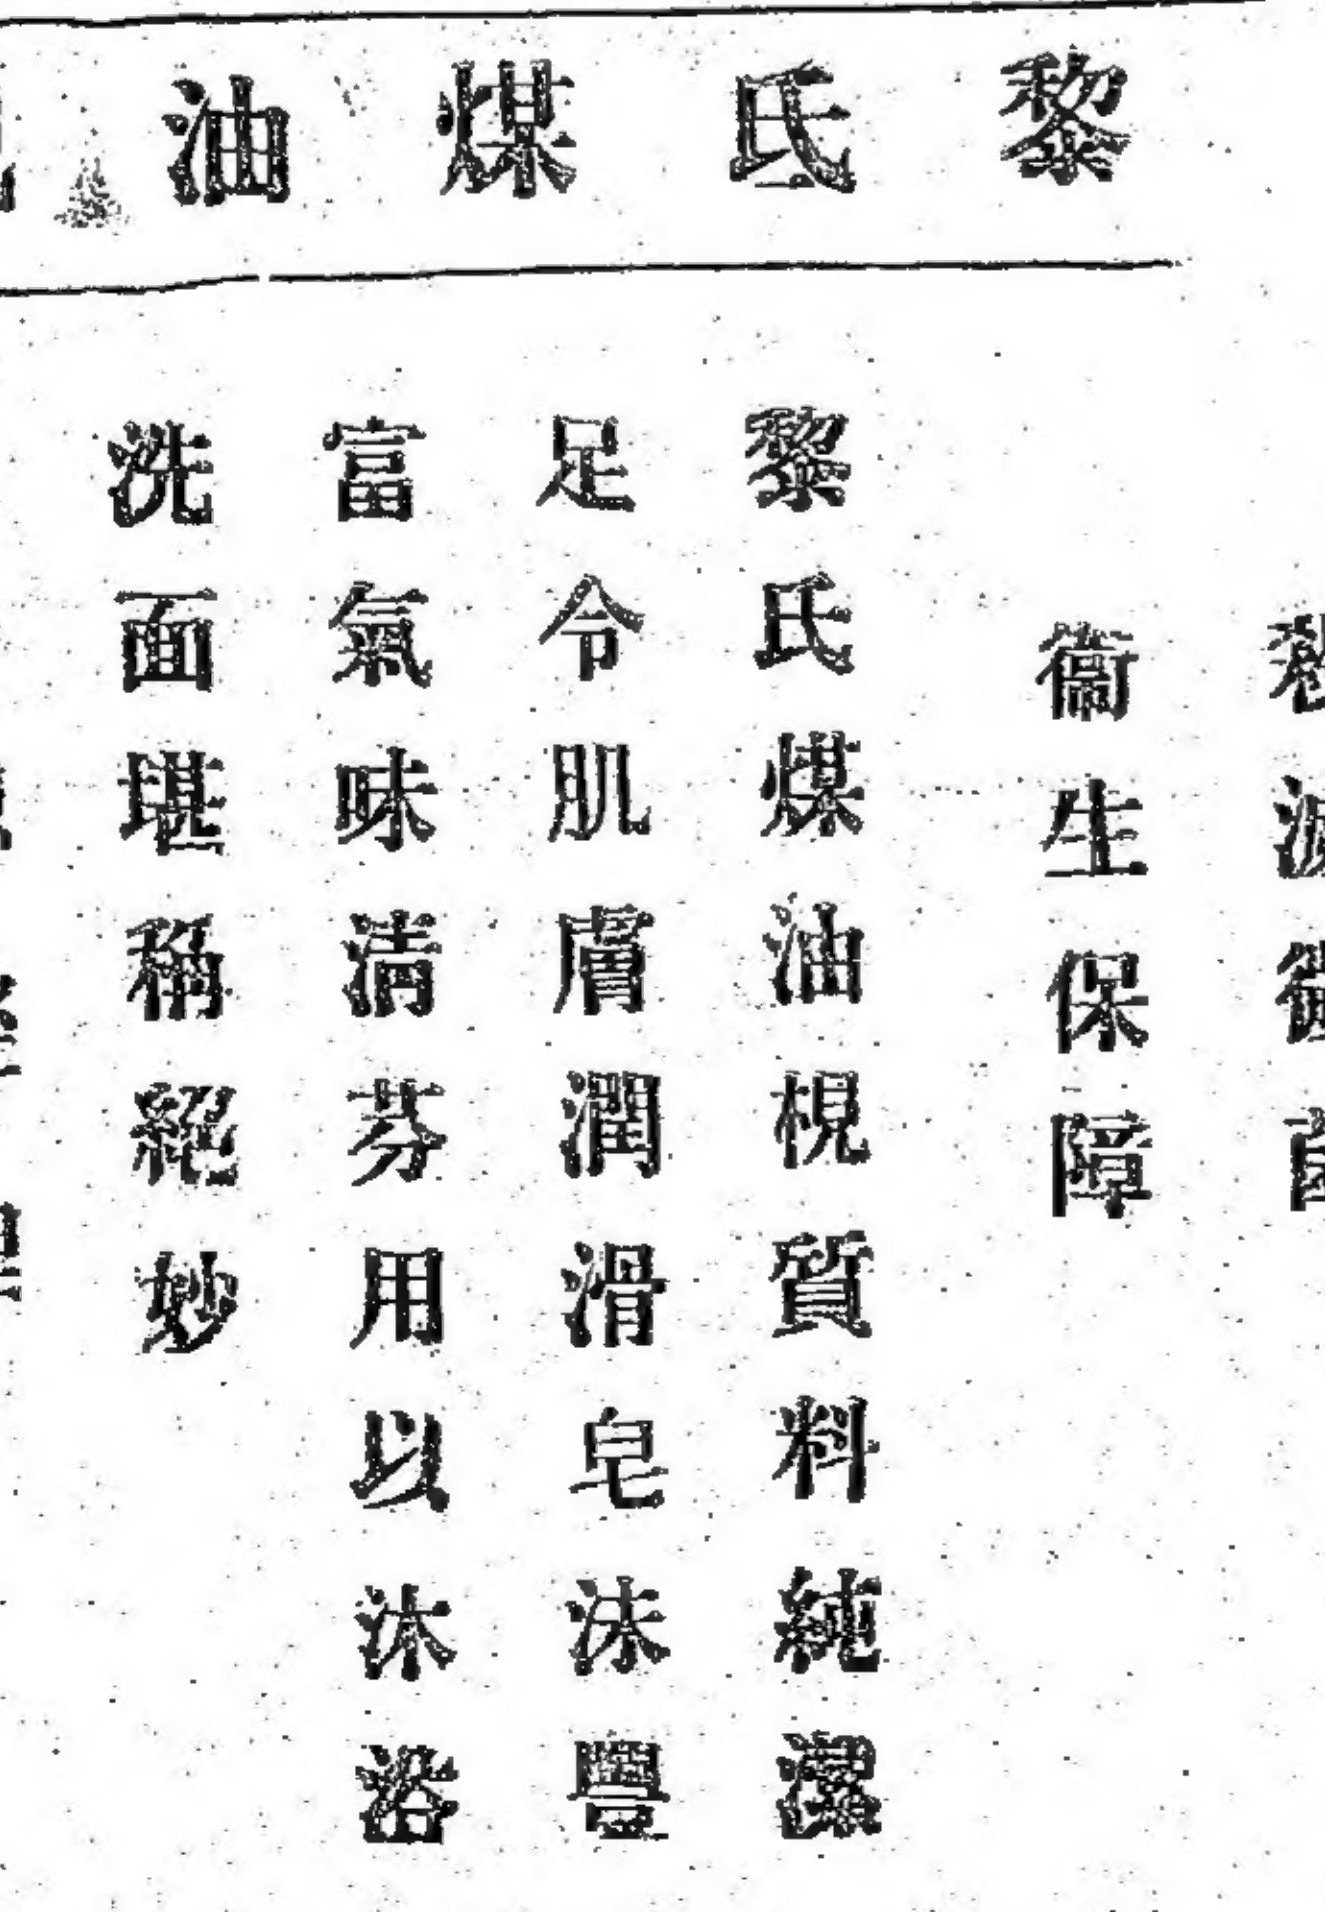 黎氏煤油
殺滅微菌
衞生保障
黎氏煤油梘質料純潔
足令肌膚潤滑皂沫豐
富氣味清芬用以沐浴
洗面堪稱絕妙